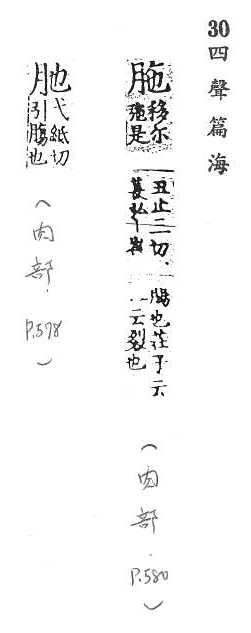 30 四聲篇海
胣 移尔 是
丑止二切、萇弘
腸也莊子云 云裂也
(肉部.P.580)
肔 弋紙切引腸也
(肉部.P.578)